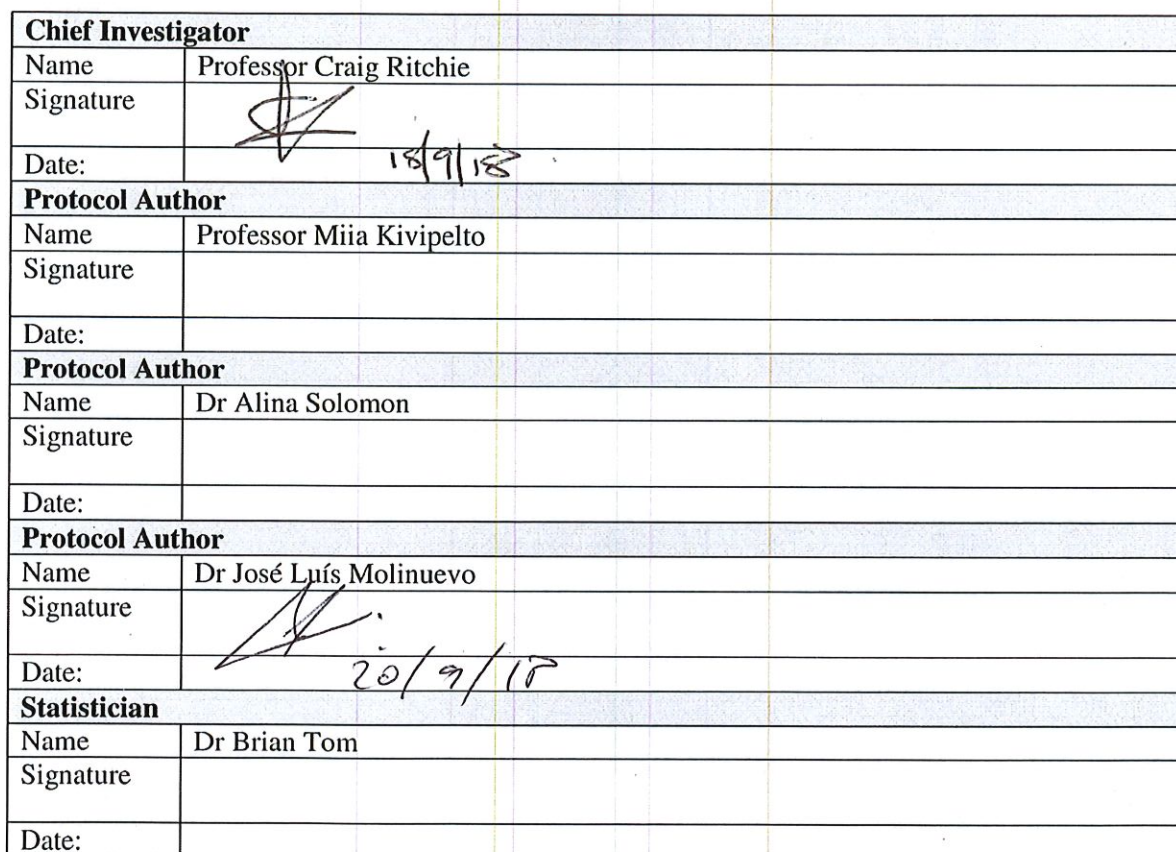 Chief Investigator
Name Professor Craig Ritchie
Signature
Date: 18/9/18
Protocol Author
Name Professor Miia Kivipelto
Signature
Date:
Protocol Author
Name Dr Alina Solomon
Signature
Date:
Protocol Author
Name Dr José Luís Molinuevo
Signature
Date: 20/9/18
Statistician
Name Dr Brian Tom
Signature
Date: